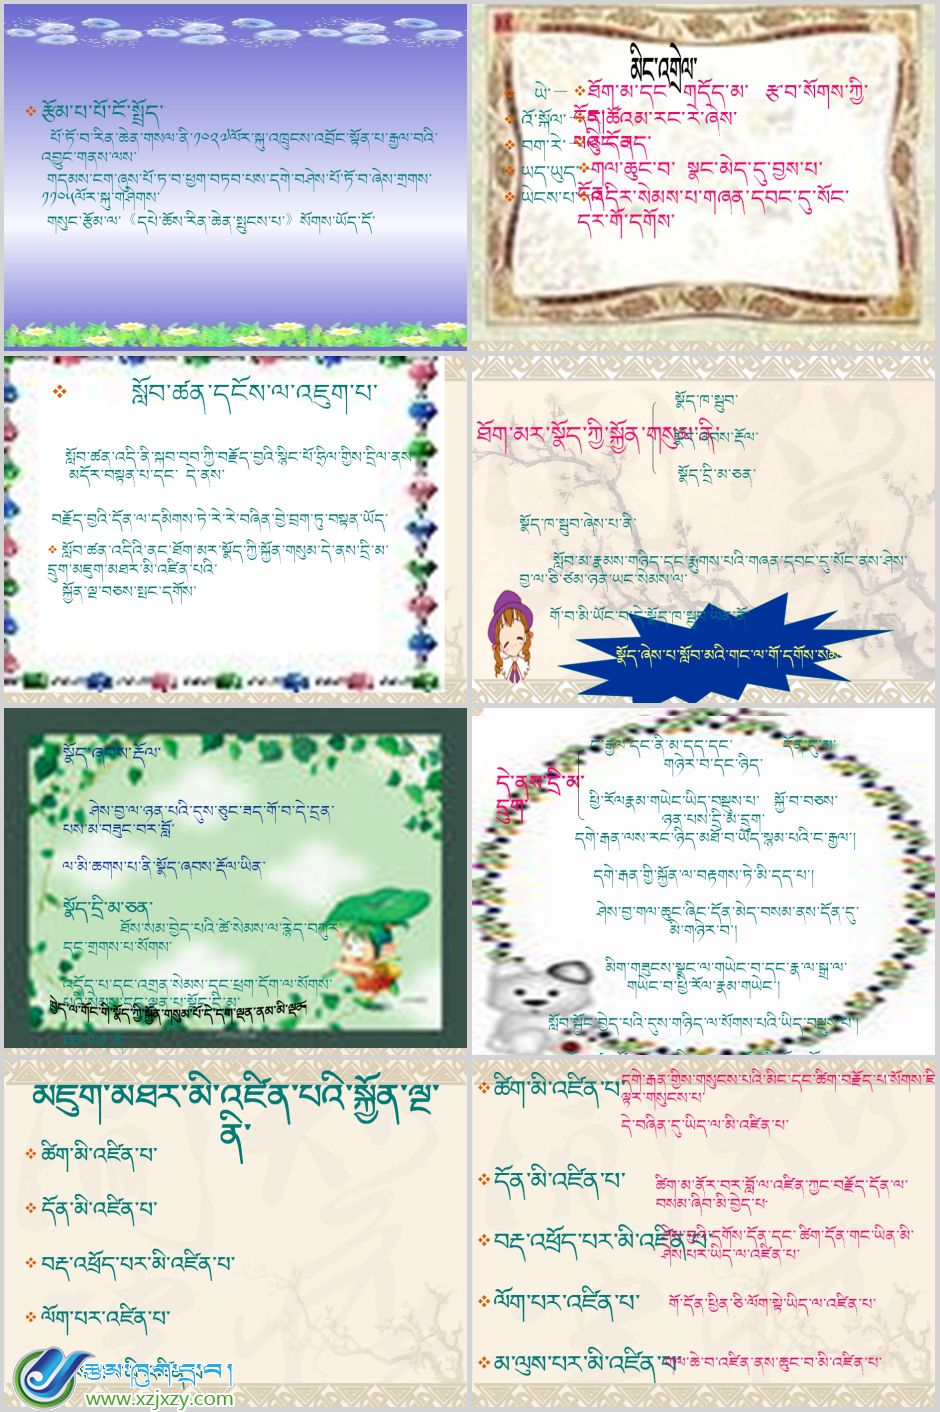 རྩོམ་པ་པོ་ངོ་སྤྲོད་
པོ་ཏོ་བ་རིན་ཆེན་གསལ་ནི་༡༠༢༧ལོར་སྐུ་འཁྲུངས་འབྲོང་སྟོན་པ་རྒྱལ་བའི་
འབྱུང་གནས་ལས་
གདམས་ངག་ཞུས་པོ་ཏ་བ་ཕྱག་བཏབ་པས་དགེ་བཤེས་པོ་ཏོ་བ་ཞེས་གྲགས་
༡༡༠༥ལོར་སྐུ་གཤེགས་
གསུང་རྩོམ་ལ་《དཔེ་ཆོས་རིན་ཆེན་སྤུངས་པ་》སོགས་ཡོད་དོ་
མིང་འགྲེལ་
ཡེ་— ཐོག་མ་དང་ གདོད་མ་ རྩ་བ་སོགས་ཀྱི་
འོ་སྐོལ་
བག་རེ་
ཡད་ཡུད་ གལ་ཆུང་བ་ སྣང་མེད་དུ་བྱས་པ་
ཡེངས་པ་ འདིར་སེམས་པ་གཞན་དབང་དུ་སོང་
དར་གོ་དགོས་
སློབ་ཚན་དངོས་ལ་འཇུག་པ་
སློབ་ཚན་འདི་ནི་སྐབ་བབ་ཀྱི་བརྗོད་བྱའི་སྙིང་པོ་ཧྲིལ་གྱིས་དྲིལ་ནས་
མདོར་བསྟན་པ་དང་ དེ་ནས་
བརྗོད་བྱའི་དོན་ལ་དམིགས་ཏེ་རེ་རེ་བཞིན་བྱེ་བྲག་ཏུ་བསྟན་ཡོད་
སློབ་ཚན་འདིའི་ནང་ཐོག་མར་སྣོད་ཀྱི་སྐྱོན་གསུམ་དེ་ནས་དྲི་མ་
དྲུག་མཇུག་མཐར་མི་འཛིན་པའི་
སྐྱོན་ལྔ་བཅས་སྤང་དགོས་
སྣོད་ཁ་སྦུབ་
ཐོག་མར་སྣོད་ཀྱི་སྐྱོན་གསུམ་ནི་
སྣོད་ཞབས་རྡོལ་
སྣོད་དྲི་མ་ཅན་
སྣོད་ཁ་སྦུབ་ཞེས་པ་ནི་
སློབ་མ་རྣམས་གཉིད་དང་རྨུགས་པའི་གཞན་དབང་དུ་སོང་ནས་ཤེས་
བྱ་ལ་ཅི་ཙམ་ཉན་ཡང་སེམས་ལ་
གོ་བ་མི་ཡོང་བ་དེ་སྣོད་ཁ་སྦུབ་ཡིན་ནོ་
སྣོད་ཞེས་པ་སློབ་མའི་གང་ལ་གོ་དགོས་སམ་
སྣོད་ཞབས་རྡོལ་
ཤེས་བྱ་ལ་ཉན་པའི་དུས་ཅུང་ཟད་གོ་བ་དེ་དྲན་
པས་མ་བཟུང་བར་བློ་
ལ་མི་ཆགས་པ་ནི་སྣོད་ཞབས་རྡོལ་ཡིན་
སྣོད་དྲི་མ་ཅན་
ཐོས་སམ་བྱེད་པའི་ཚེ་སེམས་ལ་རྙེད་བཀུར་
དང་གྲགས་པ་སོགས་
འདོད་པ་དང་འགྲན་སེམས་དང་ཕྲག་དོག་ལ་སོགས་
ང་རྒྱལ་དང་ནི་མ་དད་དང་ དོན་དུ་མ་
གཉེར་བ་དང་ཉིད་
དེ་ནས་དྲི་མ་
དྲུག་
ཕྱི་རོལ་རྣམ་གཡེང་ཡིད་བསྡུས་པ་ སྐྱོ་བ་བཅས་
ཉན་པས་དྲི་མ་དྲུག་
དགེ་རྒན་ལས་རང་ཉིད་མཐོ་བ་ཡོད་སྙམ་པའི་ང་རྒྱལ་།
དགེ་རྒན་གྱི་སྐྱོན་ལ་བརྟགས་ཏེ་མི་དད་པ་།
ཤེས་བྱ་གལ་ཆུང་ཞིང་དོན་མེད་བསམ་ནས་དོན་དུ་
མི་གཉེར་བ་།
མིག་གཟུངས་སྣང་ལ་གཡེང་བ་དང་རྣ་ལ་སྒྲ་ལ་
གཡེང་བ་ཕྱི་རོལ་རྣམ་གཡེང་།
སློབ་སྦྱོང་བྱེད་པའི་དུས་གཉིད་ལ་སོགས་པའི་ཡིད་བསྡུས་པ་།
མཇུག་མཐར་མི་འཛིན་པའི་སྐྱོན་ལྔ་
ནི་
ཚིག་མི་འཛིན་པ་
དོན་མི་འཛིན་པ་
བརྡ་འཕྲོད་པར་མི་འཛིན་པ་
ལོག་པར་འཛིན་པ་
རྩམ་ཁུ་གི་དྲ་བ།
www.xzjxzy.com
ཚིག་མི་འཛིན་པ་ དགེ་རྒན་གྱིས་གསུངས་པའི་མིང་དང་ཚིག་བརྗོད་པ་སོགས་ཇི་
ལྟར་གསུངས་པ་
དེ་བཞིན་དུ་ཡིད་ལ་མི་འཛིན་པ་
དོན་མི་འཛིན་པ་ ཚིག་མ་ནོར་བར་བློ་ལ་འཛིན་ཀྱང་བརྗོད་དོན་ལ་
བསམ་ཞིབ་མི་བྱེད་པ་
བརྡ་འཕྲོད་པར་མི་འཛིན་པ་
ཤེས་པར་ཡིད་ལ་འཛིན་པ་
ལོག་པར་འཛིན་པ་ གོ་དོན་ཕྱིན་ཅི་ལོག་སྟེ་ཡིད་ལ་འཛིན་པ་
མ་ལུས་པར་མི་འཛིན་པ་ གལ་ཆེ་བ་འཛིན་ནས་ཆུང་བ་མི་འཛིན་པ་